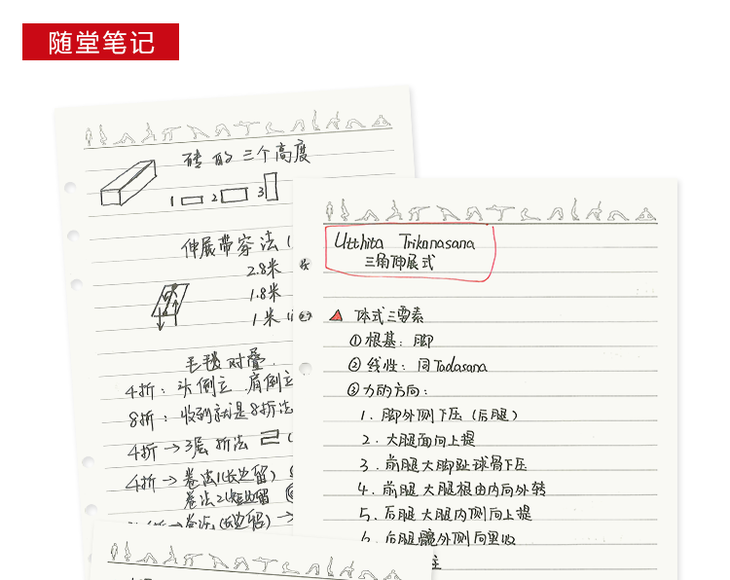 随堂笔记
砖的三个高度
1 2 3
伸展带穿法(
2.8米
1.8米
1米
毛毯对叠
4折: 头倒立 肩倒立
8折: 收到就是8折法
4折→3层折法
4折→卷法1(长边留)
卷法2 短边留
卷法(长边留)→
Utthita Trikonasana
三角伸展式
体式三要素
①根基: 脚
②线性: 同Tadasana
③力的方向:
1. 脚外侧下压(后腿)
2. 大腿面向上提
3. 前腿大脚趾球骨下压
4. 前腿大腿根由内向外转
5. 后腿大腿内侧向上提
6. 后腿髋外侧向里收